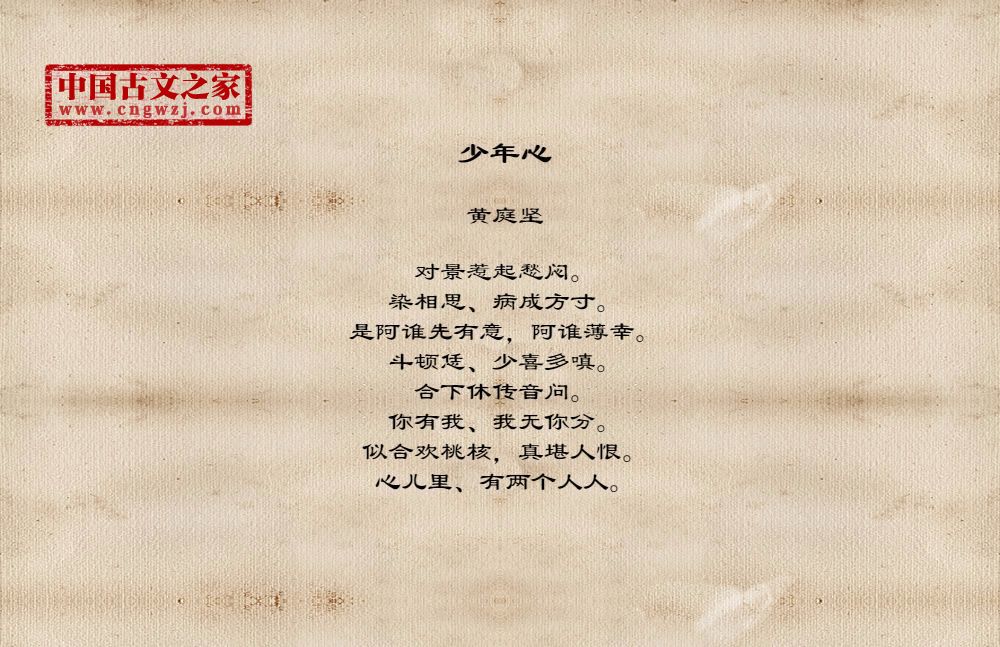 中国古文之家
www.cngwzj.com
少年心
黄庭坚
对景惹起愁闷。
染相思、病成方寸。
是阿谁先有意，阿谁薄幸。
斗顿恁、少喜多嗔。
合下休传音问。
你有我、我无你分。
似合欢桃核，真堪人恨。
心儿里、有两个人人。